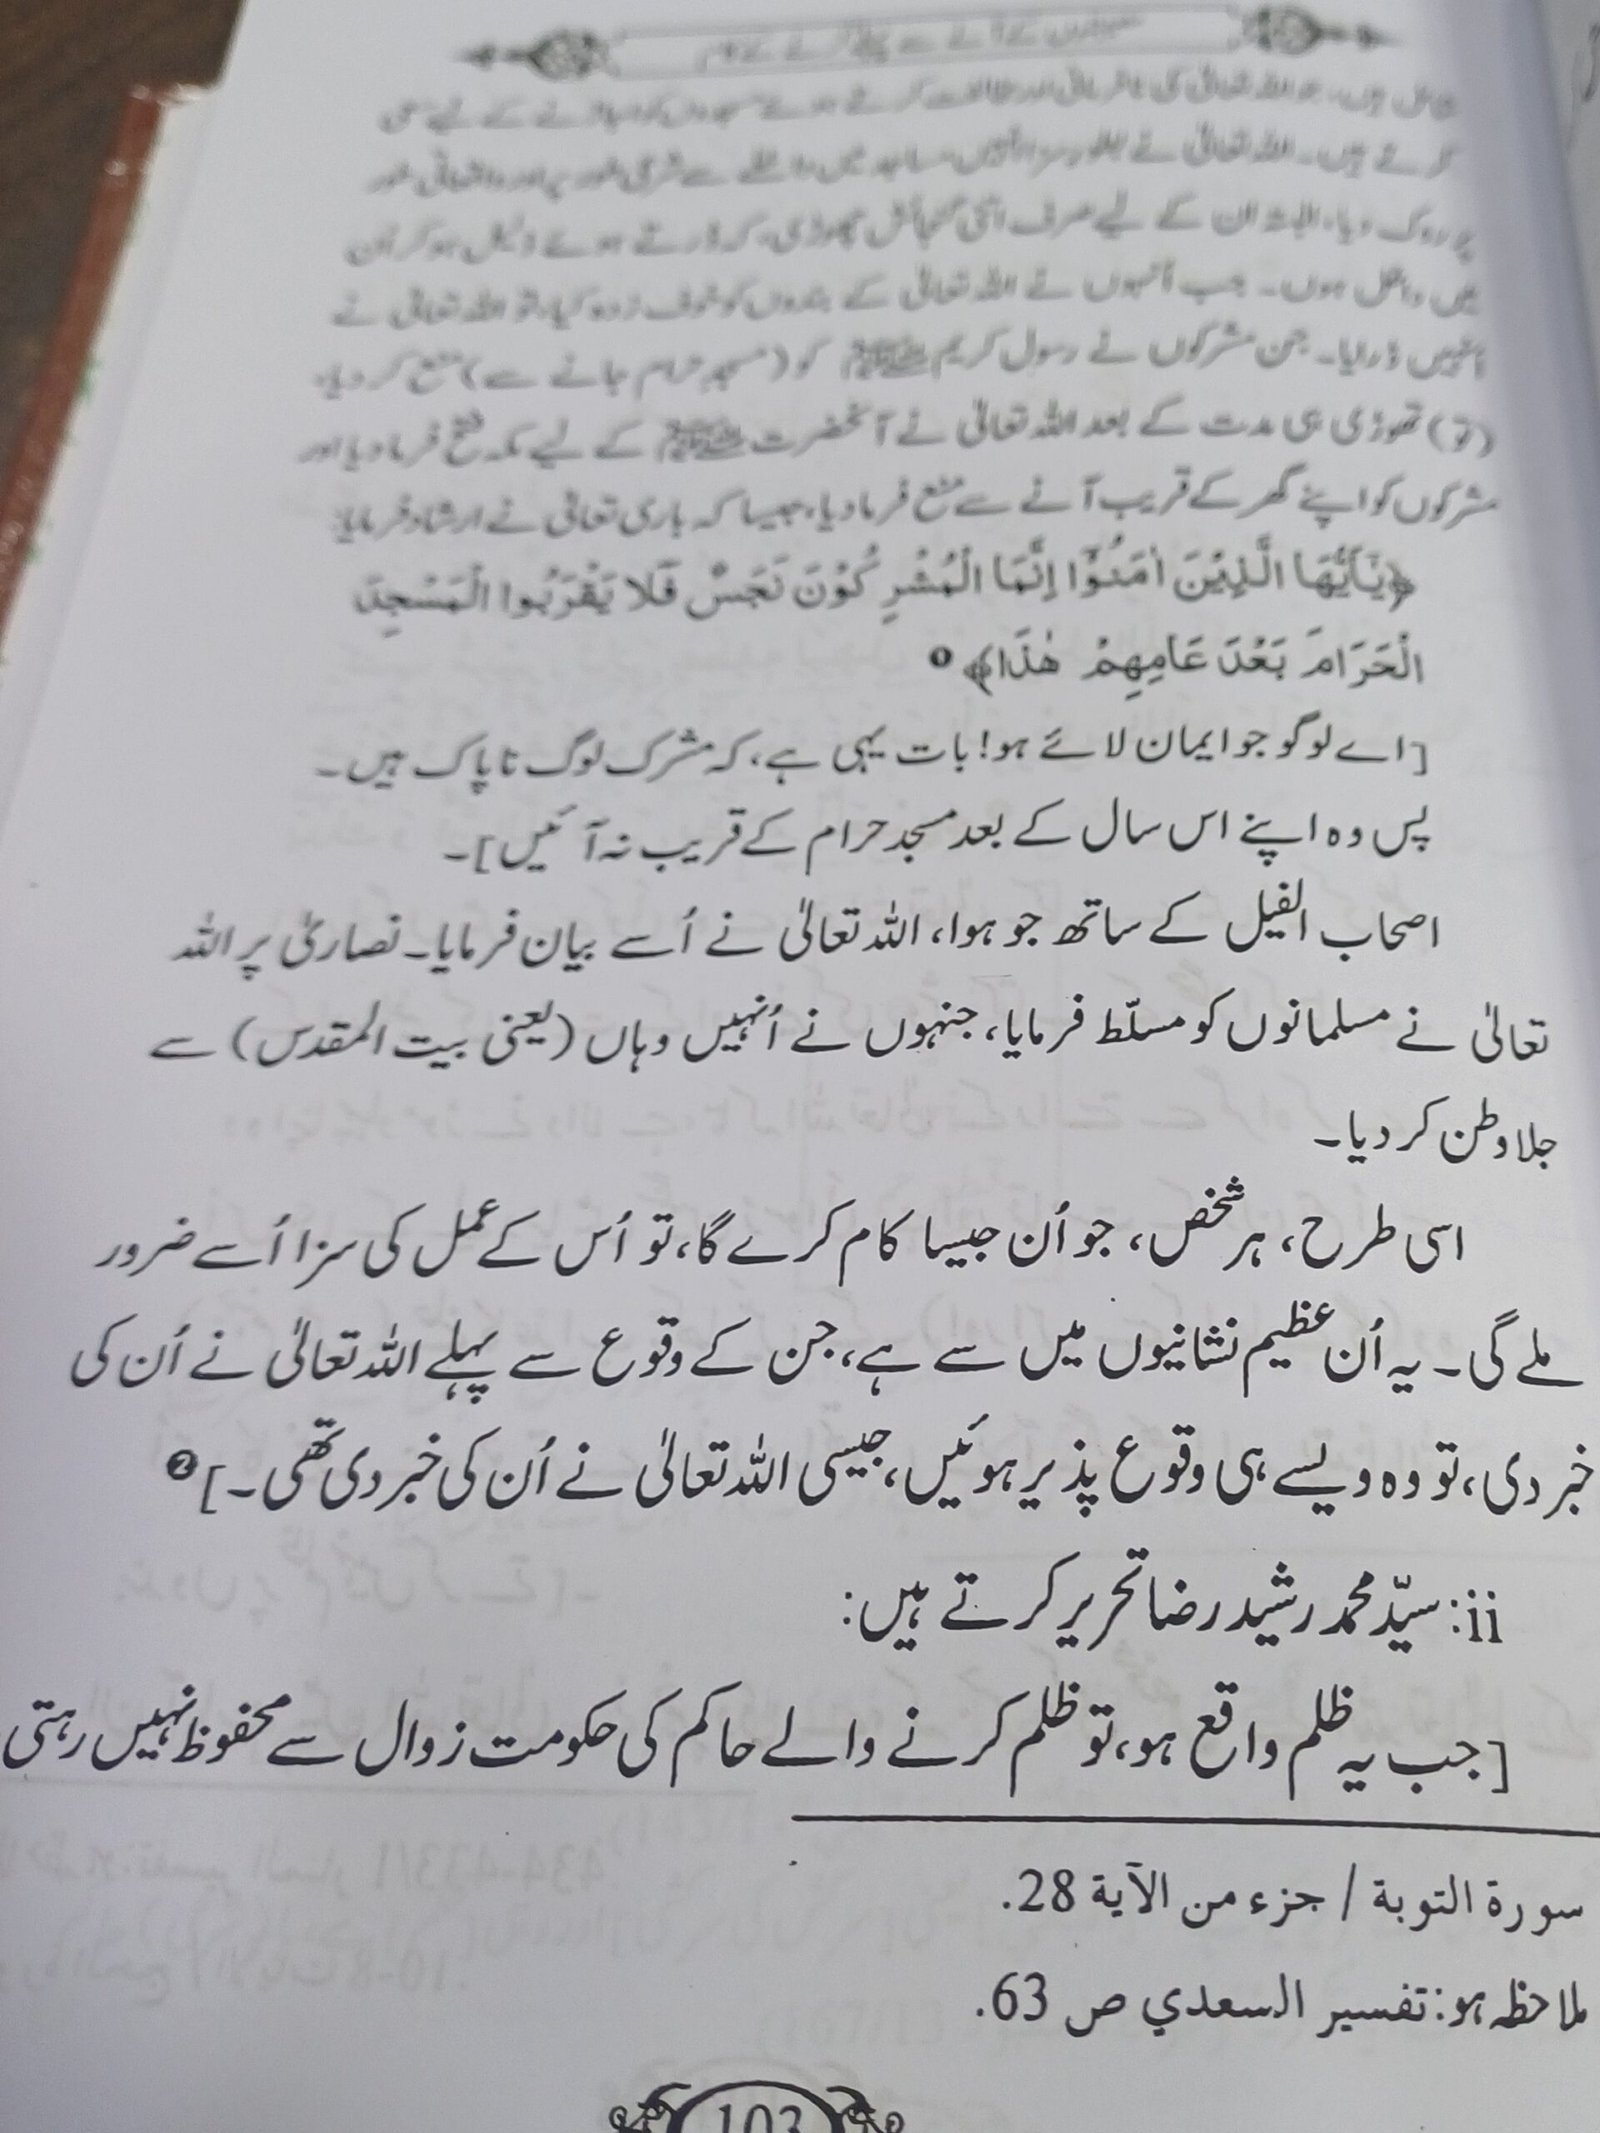 کرتے ہیں۔ اللہ تعالیٰ نے بطور سزا انہیں مساجد میں داخلے سے شرعی طور پر اور
روک دیا، البتہ ان کے لیے صرف اتنی گنجائش چھوڑی، کہ ڈرتے ہوئے ذلیل ہو کر اُن
میں داخل ہوں۔ جب اُنہوں نے اللہ تعالیٰ کے بندوں کو خوف زدہ کیا، تو اللہ تعالیٰ نے
انہیں ڈرایا۔ جن مشرکوں نے رسول کریم ﷺ کو (مسجدِ حرام جانے سے) منع کر دیا،
(تو) تھوڑی ہی مدت کے بعد اللہ تعالیٰ نے آنحضرت ﷺ کے لیے مکہ فتح فرما دیا اور
مشرکوں کو اپنے گھر کے قریب آنے سے منع فرما دیا، جیسا کہ باری تعالیٰ نے ارشاد فرمایا:
﴿يَٰٓأَيُّهَا الَّذِيْنَ اٰمَنُوْٓا اِنَّمَا الْمُشْرِكُوْنَ نَجَسٌ فَلَا يَقْرَبُوا الْمَسْجِدَ
الْحَرَامَ بَعْدَ عَامِهِمْ هٰذَا﴾ ❶
[اے لوگو جو ایمان لائے ہو! بات یہی ہے، کہ مشرک لوگ ناپاک ہیں۔
پس وہ اپنے اس سال کے بعد مسجد حرام کے قریب نہ آئیں]۔
اصحاب الفیل کے ساتھ جو ہوا، اللہ تعالیٰ نے اُسے بیان فرمایا۔ نصاریٰ پر اللہ
تعالیٰ نے مسلمانوں کو مسلّط فرمایا، جنہوں نے اُنہیں وہاں (یعنی بیت المقدس) سے
جلا وطن کر دیا۔
اسی طرح، ہر شخص، جو اُن جیسا کام کرے گا، تو اُس کے عمل کی سزا اُسے ضرور
ملے گی۔ یہ اُن عظیم نشانیوں میں سے ہے، جن کے وقوع سے پہلے اللہ تعالیٰ نے اُن کی
خبر دی، تو وہ ویسے ہی وقوع پذیر ہوئیں، جیسی اللہ تعالیٰ نے اُن کی خبر دی تھی۔] ❷
ii: سیّد محمد رشید رضا تحریر کرتے ہیں:
[جب یہ ظلم واقع ہو، تو ظلم کرنے والے حاکم کی حکومت زوال سے محفوظ نہیں رہتی
سورة التوبة / جزء من الآية 28.
ملاحظہ ہو: تفسير السعدي ص 63.
103